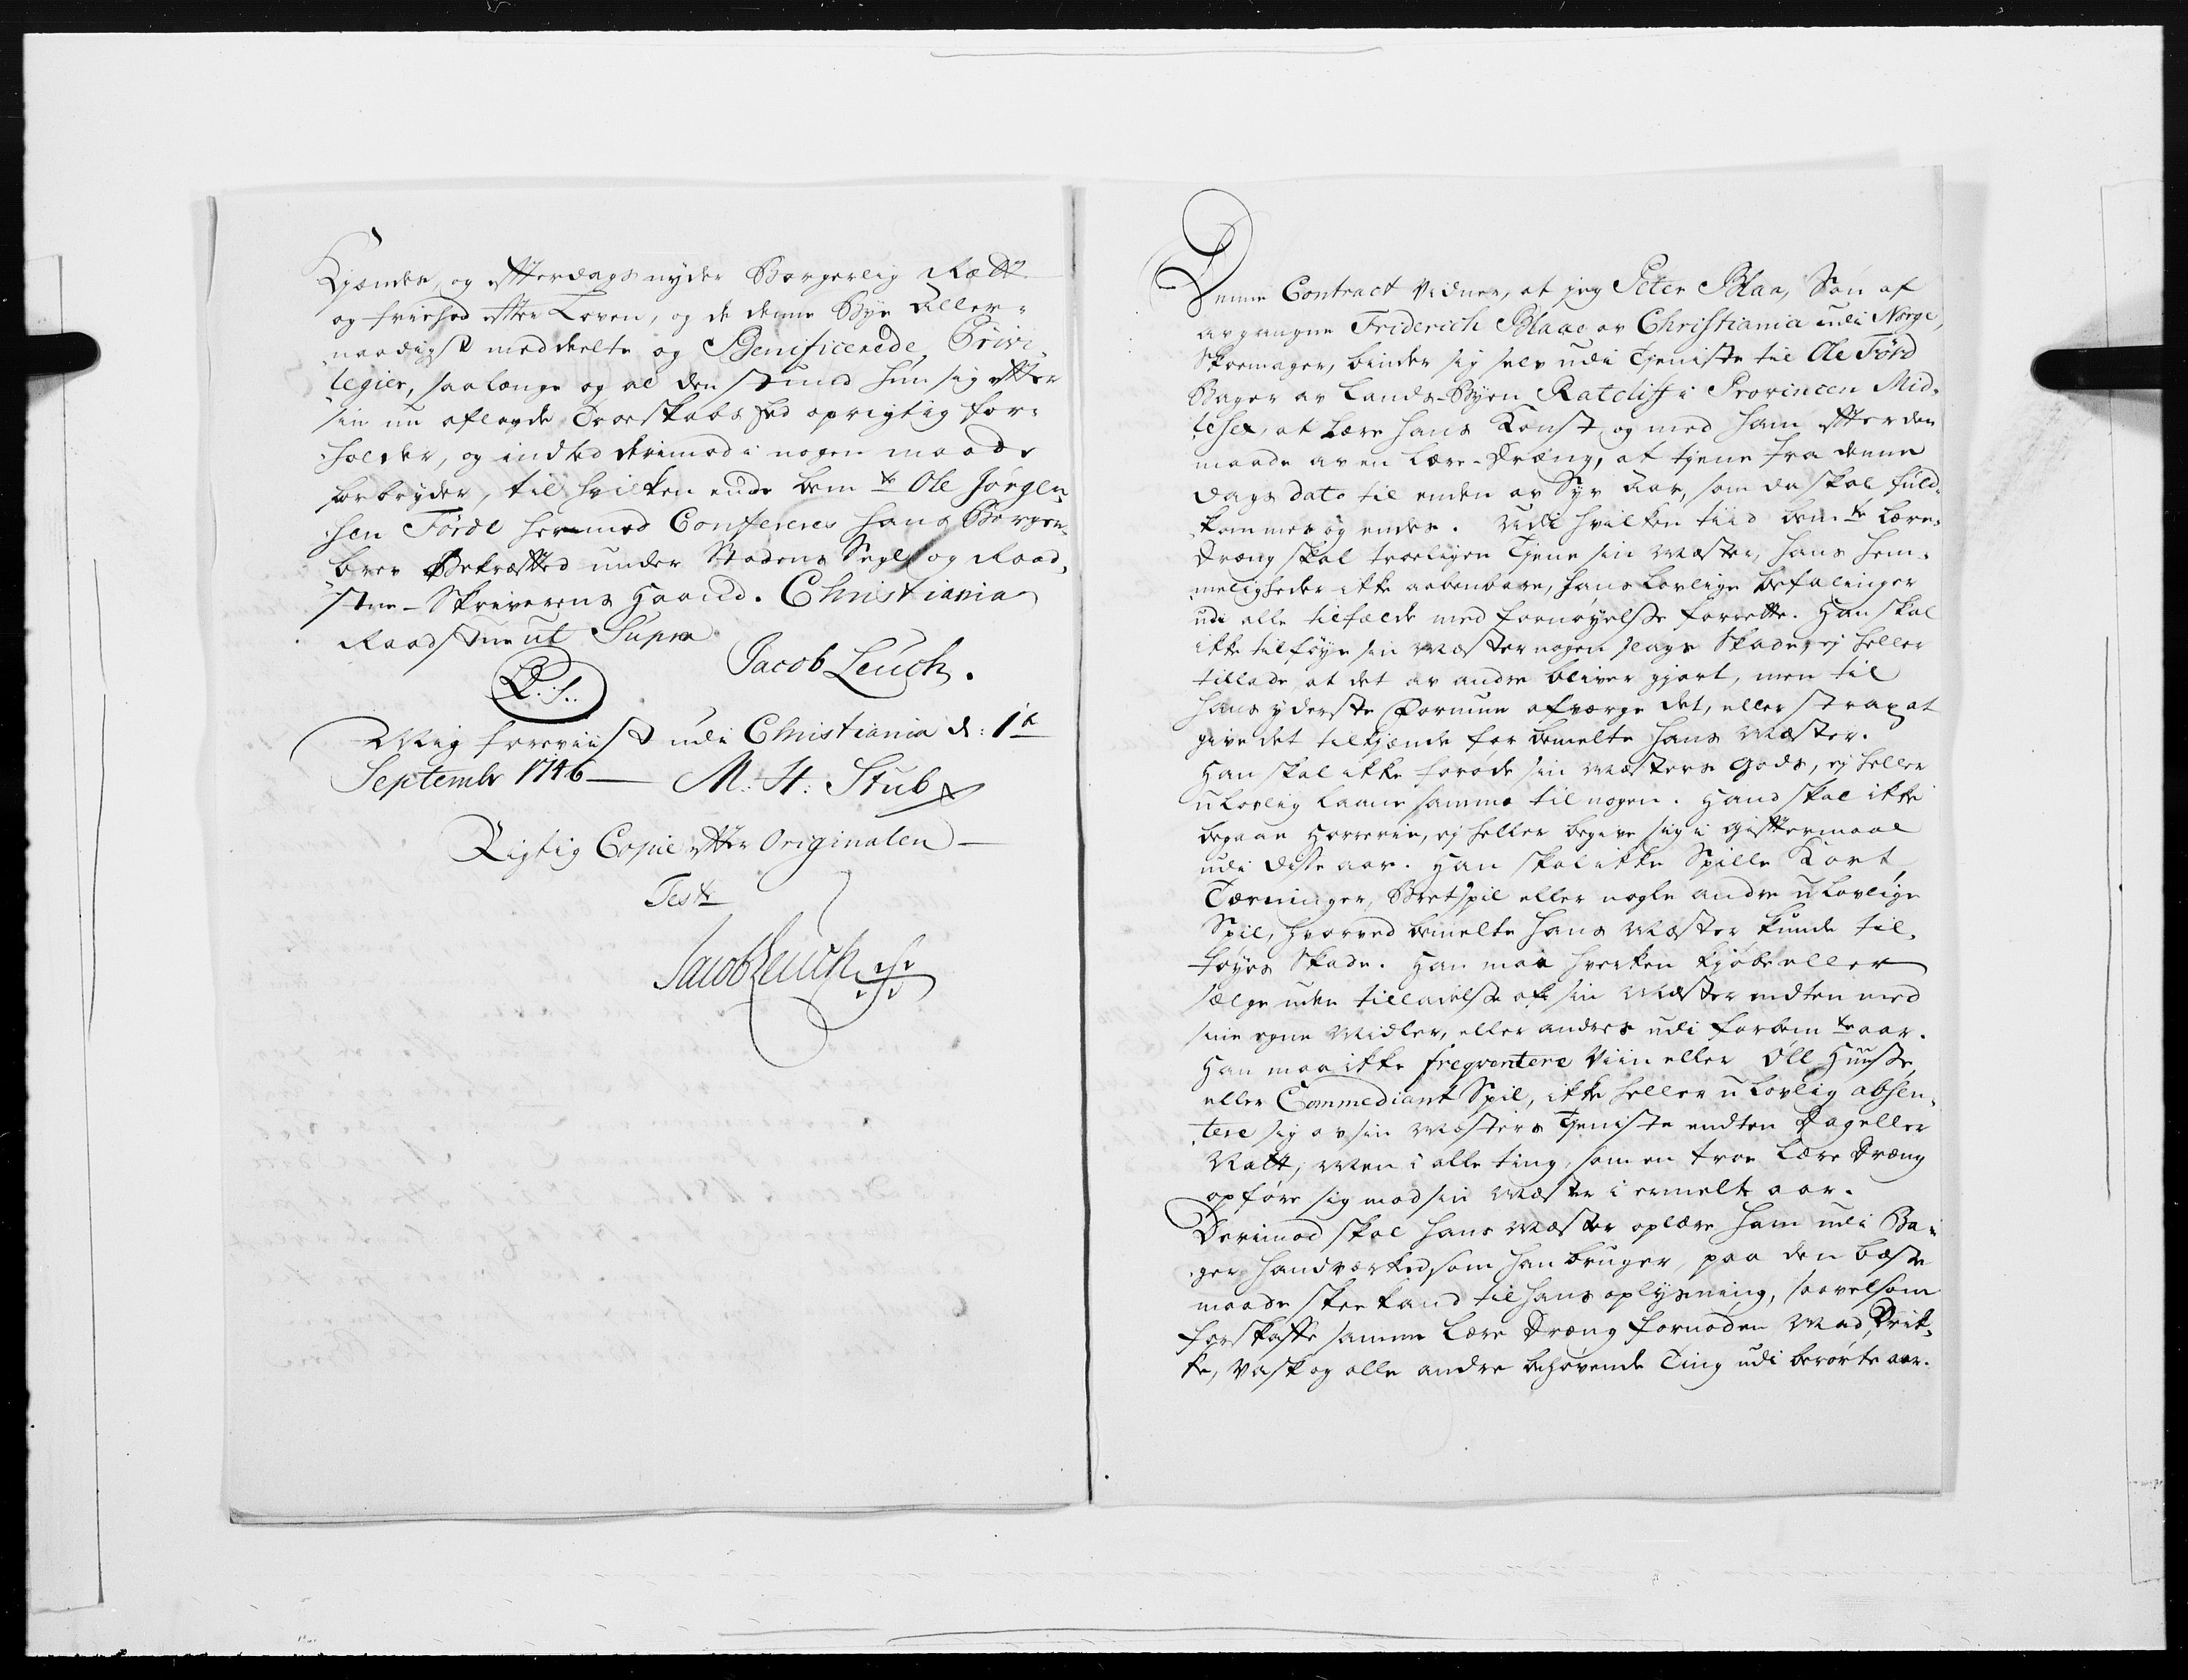 Kiender, og efterdags nyder Borgerlig Rætt
og friehed efter Loven, og de denne Bye Aller-
naadigst meddeelte og Benificerede Privi-
legier, saalænge og al den stund hun sig efter
sin nu aflagde Troeskabs Eed oprigtig for-
holder, og indted derimod i nogen maade
forbryder, til hvilken ende bem.te Ole Jørgen-
sen Förde hermed Confereres hans Borger-
brev Bekræftted under Stadens Segl og Raad-
stue-Skriverens Haand. Christiania
Raadstue ut Supra
L.S. Jacob Leuch.
Mig foreviist udi Christiania d: 1te
Septembr 1746 — M: H: Stub
Rigtig Copie efter Originalen —
Test.
Jacob Leuch
Denne Contract vidner, at jeg Peter Blaa, Søn af
avgangne Friderich Blaae av Christiania udi Norge,
Skoemager, binder sig selv udi Tieniste til Ole Förd
Bager av Lands-Byen Ratcliff i Provincen Mid-
lesex, at lære hans Konst og med ham efter den
maade av en Lære-Dræng, at tiene fra denne
dags dato til enden av Syv Aar, som da skal fuld-
kommes og endes. Udi hvilken tiid bem.te Lære-
Dræng skal troeligen tiene sin Mæster, hans hem-
meligheder ikke aabenbare, hans lovlige befalinger
udi alle tilfælde med fornøyelse forrette. Han skal
ikke tilføye sin Mæster nogen slags Skade, ej heller
tillade at det av andre bliver giort, men til
hans yderste Formue afværge det, eller strax at
give det tilkiende for bemelte hans Mæster.
Han skal ikke forøde sin Mæsters Gods, ej heller
ulovlig laane samme til nogen. Hand skal ikke
begaae Horerie, ej heller begive sig i Gifttermaal
udi disse aar. Han skal ikke Spille Kort,
Tærninger, Bretspil eller nogle andre ulovlige
Spil, hvorved bemelte hans Mæster kunde til-
føyes Skade. Han maa hverken kiöbe eller
sælge uden tilladelse af sin Mæster endten med
sine egne Midler, eller andres udi forbem.te aar.
Han maa ikke freqventere Viin eller Öll Huuse,
eller Commediant Spil, ikke heller ulovlig absen-
tere sig av sin Mæsters Tieniste endten Dag eller
Natt; Men i alle ting, som en troe Lære Dræng
opføre sig mod sin Mæster i ermelte aar.
Derimod skal hans Mæster oplære ham udi Ba-
ger Handværked som han bruger, paa den beste
maade skee kand til hans oplysning, saavelsom
forskaffe samme Lære Dræng fornøden Mad, Drik-
ke, Vask og alle andre behøvende Ting udi berørte aar.